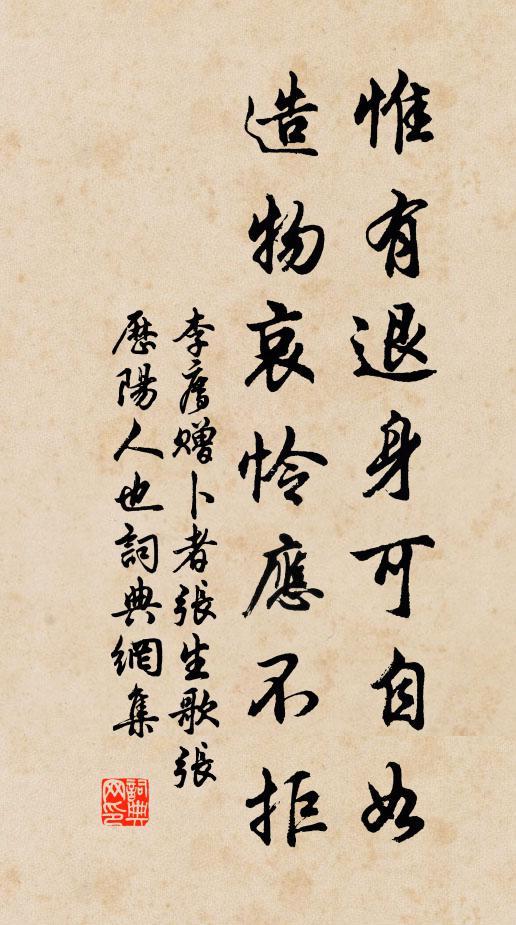 惟有退身可自如
造物哀怜應不拒
李廌贈卜者張生歌張
歷陽人也詞典網集
詞典網印